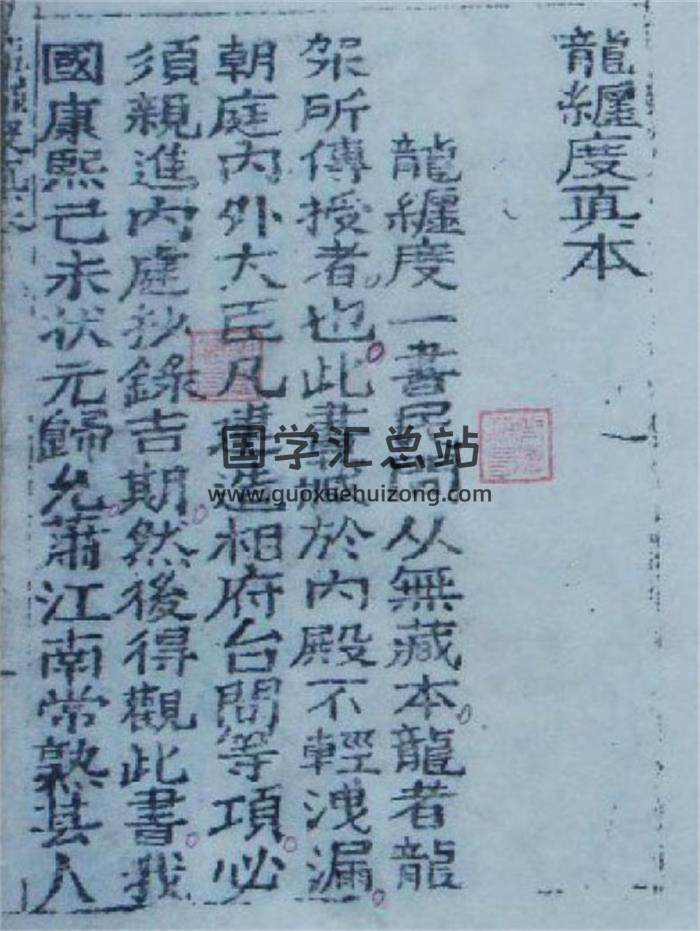 龍纏度真本
龍纏度一書民間从無藏本龍者龍
架所傳授者也此書藏於内殿不輕洩漏
朝庭内外大臣凡建造相府台問等項必
須親進内庭抄錄吉期然後得觀此書我
國康熙己未状元歸允蕭江南常熟县人
国学汇总站
www.guoxuehuizong.com